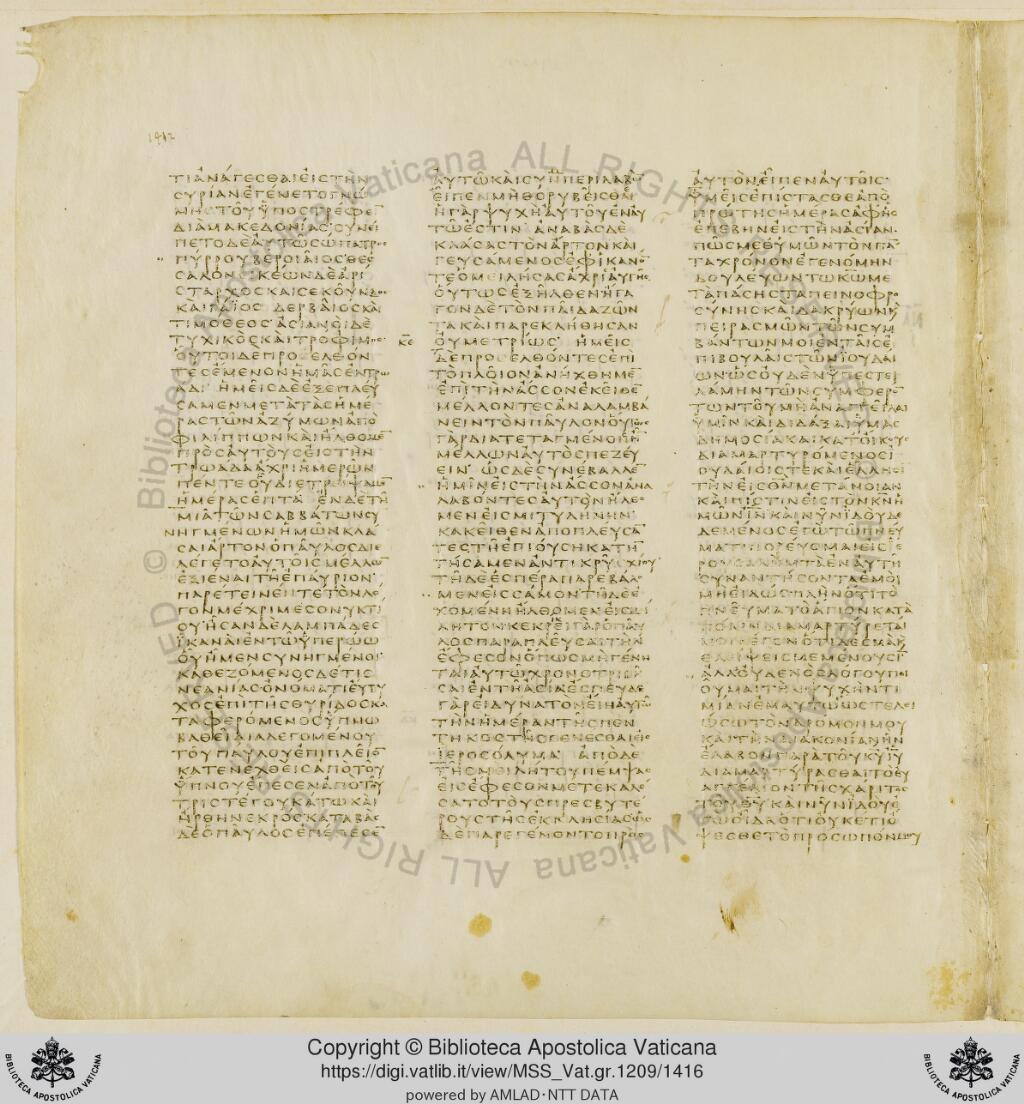 1412
ΤΙΑΝΑΓΕϹΘΑΙΕΙϹΤΗΝ
ϹΥΡΙΑΝΕΓΕΝΕΤΟΓΝΩ
ΜΗϹΤΟΥΫΠΟϹΤΡΕΦΕΙ̅
ΔΙΑΜΑΚΕΔΟΝΙΑϹϹΥΝΕΙ
ΠΕΤΟΔΕΑΥΤΩϹΩΠΑΤΡΟϹ
ΠΥΡΡΟΥΒΕΡΟΙΑΙΟϹΘΕϹ
ϹΑΛΟΝΙΚΕΩΝΔΕΑΡΙ
ϹΤΑΡΧΟϹΚΑΙϹΕΚΟΥΝΔΟϹ
ΚΑΙΓΑΪΟϹ ΔΕΡΒΑΙΟϹΚΑΙ
ΤΙΜΟΘΕΟϹ ΑϹΙΑΝΟΙΔΕ
ΤΥΧΙΚΟϹΚΑΙΤΡΟΦΙΜΟϹ
ΟΥΤΟΙΔΕΠΡΟϹΕΛΘΟΝ
ΤΕϹΕΜΕΝΟΝΗΜΑϹΕΝΤΡΩ
ΑΔΙ ΗΜΕΙϹΔΕΕΞΕΠΛΕΥ
ϹΑΜΕΝΜΕΤΑΤΑϹΗΜΕ
ΡΑϹΤΩΝΑΖΥΜΩΝΑΠΟ
ΦΙΛΙΠΠΩΝΚΑΙΗΛΘΟΜΕ̅
ΠΡΟϹΑΥΤΟΥϹΕΙϹΤΗΝ
ΤΡΩΑΔΑΑΧΡΙΗΜΕΡΩΝ
ΠΕΝΤΕΟΥΔΙΕΤΡΙΨΑΜΕ̅
ΗΜΕΡΑϹΕΠΤΑ ΕΝΔΕΤΗ
ΜΙΑΤΩΝϹΑΒΒΑΤΩΝϹΥ
ΝΗΓΜΕΝΩΝΗΜΩΝΚΛΑ
ϹΑΙΑΡΤΟΝΟΠΑΥΛΟϹΔΙΕ
ΛΕΓΕΤΟΑΥΤΟΙϹΜΕΛΛΩ̅
ΕΞΙΕΝΑΙΤΗΕΠΑΥΡΙΟΝ
ΠΑΡΕΤΕΙΝΕΝΤΕΤΟΝΛΟ
ΓΟΝΜΕΧΡΙΜΕϹΟΝΥΚΤΙ
ΟΥΗϹΑΝΔΕΛΑΜΠΑΔΕϹ
ΪΚΑΝΑΙΕΝΤΩΫΠΕΡΩΩ
ΟΥΗΜΕΝϹΥΝΗΓΜΕΝΟΙ
ΚΑΘΕΖΟΜΕΝΟϹΔΕΤΙϹ
ΝΕΑΝΙΑϹΟΝΟΜΑΤΙΕΥΤΥ
ΧΟϹΕΠΙΤΗϹΘΥΡΙΔΟϹΚΑ
ΤΑΦΕΡΟΜΕΝΟϹΫΠΝΩ
ΒΑΘΕΙΔΙΑΛΕΓΟΜΕΝΟΥ
ΤΟΥΠΑΥΛΟΥΕΠΙΠΛΕΙΟ̅
ΚΑΤΕΝΕΧΘΕΙϹΑΠΟΤΟΥ
ΫΠΝΟΥΕΠΕϹΕΝΑΠΟΤΟΥ
ΤΡΙϹΤΕΓΟΥΚΑΤΩΚΑΙ
ΗΡΘΗΝΕΚΡΟϹΚΑΤΑΒΑϹ
ΔΕΟΠΑΥΛΟϹΕΠΕΠΕϹΕ̅
ΑΥΤΩΚΑΙϹΥΝΠΕΡΙΛΑΒΩ̅
ΕΙΠΕΝΜΗΘΟΡΥΒΕΙϹΘΑΙ
ΗΓΑΡΨΥΧΗΑΥΤΟΥΕΝΑΥ
ΤΩΕϹΤΙΝ ΑΝΑΒΑϹΔΕ
ΚΛΑϹΑϹΤΟΝΑΡΤΟΝΚΑΙ
ΓΕΥϹΑΜΕΝΟϹΕΦΙΚΑΝΟ̅
ΤΕΟΜΕΙΛΗϹΑϹΑΧΡΙΑΥΓΗϹ
ΟΥΤΩϹΕΞΗΛΘΕΝΗΓΑ
ΓΟΝΔΕΤΟΝΠΑΙΔΑΖΩΝ
ΤΑΚΑΙΠΑΡΕΚΛΗΘΗϹΑΝ
ΚΕ ΟΥΜΕΤΡΙΩϹ ΗΜΕΙϹ
ΔΕΠΡΟϹΕΛΘΟΝΤΕϹΕΠΙ
ΤΟΠΛΟΙΟΝΑΝΗΧΘΗΜΕ̅
ΕΠΙΤΗΝΑϹϹΟΝΕΚΕΙΘΕ̅
ΜΕΛΛΟΝΤΕϹΑΝΑΛΑΜΒΑ
ΝΕΙΝΤΟΝΠΑΥΛΟΝΟΥΤΩϹ
ΓΑΡΔΙΑΤΕΤΑΓΜΕΝΟΗΝ
ΜΕΛΛΩΝΑΥΤΟϹΠΕΖΕΥ
ΕΙΝ ΩϹΔΕϹΥΝΕΒΑΛΛΕ̅
ΗΜΙΝΕΙϹΤΗΝΑϹϹΟΝΑΝΑ
ΛΑΒΟΝΤΕϹΑΥΤΟΝΗΛΘΟ
ΜΕΝΕΙϹΜΙΤΥΛΗΝΗΝ
ΚΑΚΕΙΘΕΝΑΠΟΠΛΕΥϹΑ̅
ΤΕϹΤΗΕΠΙΟΥϹΗΚΑΤΗ̅
ΤΗϹΑΜΕΝΑΝΤΙΚΡΥϹΧΙΟΥ
ΤΗΔΕΕϹΠΕΡΑΠΑΡΕΒΑΛΟ
ΜΕΝΕΙϹϹΑΜΟΝΤΗΔΕΕ
ΧΟΜΕΝΗΗΛΘΟΜΕΝΕΙϹΜΙ
ΛΗΤΟΝΚΕΚΡΙΚΕΙΓΑΡΟΠΑΥ
ΛΟϹΠΑΡΑΠΛΕΥϹΑΙΤΗΝ
ΕΦΕϹΟΝΟΠΩϹΜΗΓΕΝΗ
ΤΑΙΑΥΤΩΧΡΟΝΟΤΡΙΒΗ
ϹΑΙΕΝΤΗΑϹΙΑΕϹΠΕΥΔΕ
ΓΑΡΕΙΔΥΝΑΤΟΝΕΙΗΑΥΤΩ
ΤΗΝΗΜΕΡΑΝΤΗϹΠΕΝ
ΤΗΚΟϹΤΗϹΓΕΝΕϹΘΑΙΕΙϹ
ΙΕΡΟϹΟΛΥΜΑ ΑΠΟΔΕ
ΤΗϹΜΕΙΛΗΤΟΥΠΕΜΨΑϹ
ΕΙϹΕΦΕϹΟΝΜΕΤΕΚΑΛΕ
ϹΑΤΟΤΟΥϹΠΡΕϹΒΥΤΕ
ΡΟΥϹΤΗϹΕΚΚΛΗϹΙΑϹΩϹ
ΔΕΠΑΡΕΓΕΝΟΝΤΟΠΡΟϹ
ΑΥΤΟΝΕΙΠΕΝΑΥΤΟΙϹ
ΫΜΕΙϹΕΠΙϹΤΑϹΘΕΑΠΟ
ΠΡΩΤΗϹΗΜΕΡΑϹΑΦΗϹ
ΕΠΕΒΗΝΕΙϹΤΗΝΑϹΙΑΝ
ΠΩϹΜΕΘΥΜΩΝΤΟΝΠΑ̅
ΤΑΧΡΟΝΟΝΕΓΕΝΟΜΗΝ
ΔΟΥΛΕΥΩΝΤΩΚΩΜΕ
ΤΑΠΑϹΗϹΤΑΠΕΙΝΟΦΡΟ
ϹΥΝΗϹΚΑΙΔΑΚΡΥΩΝΚΑΙ
ΠΕΙΡΑϹΜΩΝΤΩΝϹΥΜ
ΒΑΝΤΩΝΜΟΙΕΝΤΑΙϹΕ
ΠΙΒΟΥΛΑΙϹΤΩΝΙΟΥΔΑΙ
ΩΝΩϹΟΥΔΕΝΫΠΕϹΤΕΙ
ΛΑΜΗΝΤΩΝϹΥΜΦΕΡΟ̅
ΤΩΝΤΟΥΜΗΑΝΑΓΓΕΙΛΑΙ
ΫΜΙΝΚΑΙΔΙΔΑΞΑΙΥΜΑϹ
ΔΗΜΟϹΙΑΚΑΙΚΑΤΟΙΚΟΥϹ
ΔΙΑΜΑΡΤΥΡΟΜΕΝΟϹΙ
ΟΥΔΑΙΟΙϹΤΕΚΑΙΕΛΛΗϹΙ
ΤΗΝΕΙϹΘΝ̅ΜΕΤΑΝΟΙΑΝ
ΚΑΙΠΙϹΤΙΝΕΙϹΤΟΝΚΝ̅Η
ΜΩΝΙΝ̅ΚΑΙΝΥΝΙΔΟΥΔΕ
ΔΕΜΕΝΟϹΕΓΩΤΩΠΝΕΥ
ΜΑΤΙΠΟΡΕΥΟΜΑΙΕΙϹΙΕ
ΡΟΥϹΑΛΗΜΤΑΕΝΑΥΤΗ
ϹΥΝΑΝΤΗϹΟΝΤΑΕΜΟΙ
ΜΗΕΙΔΩϹΠΛΗΝΟΤΙΤΟ
ΠΝΕΥΜΑΤΟΑΓΙΟΝΚΑΤΑ
ΠΟΛΙΝΔΙΑΜΑΡΤΥΡΕΤΑΙ
ΜΟΙΛΕΓΟΝΟΤΙΔΕϹΜΑΚΑΙ
ΘΛΕΙΨΕΙϹΜΕΜΕΝΟΥϹΙ̅
ΑΛΛΟΥΔΕΝΟϹΛΟΓΟΥΠΟΙ
ΟΥΜΑΙΤΗΝΨΥΧΗΝΤΙ
ΜΙΑΝΕΜΑΥΤΩΩϹΤΕΛΕΙ
ΩϹΩΤΟΝΔΡΟΜΟΝΜΟΥ
ΚΑΙΤΗΝΔΙΑΚΟΝΙΑΝΗΝ
ΕΛΑΒΟΝΠΑΡΑΤΟΥΚΥ̅ΙΥ̅
ΔΙΑΜΑΡΤΥΡΑϹΘΑΙΤΟΕΥ
ΑΓΓΕΛΙΟΝΤΗϹΧΑΡΙΤΟϹ
ΤΟΥΘΥ̅ΚΑΙΝΥΝΙΔΟΥΕ
ΓΩΟΙΔΑΟΤΙΟΥΚΕΤΙΟ
ΨΕϹΘΕΤΟΠΡΟϹΩΠΟΝΜΟΥ
Biblioteca Apostolica Vaticana ALL RIGHTS RESERVED ©
Copyright © Biblioteca Apostolica Vaticana
https://digi.vatlib.it/view/MSS_Vat.gr.1209/1416
powered by AMLAD·NTT DATA
BIBLIOTECA APOSTOLICA VATICANA
BIBLIOTECA APOSTOLICA VATICANA